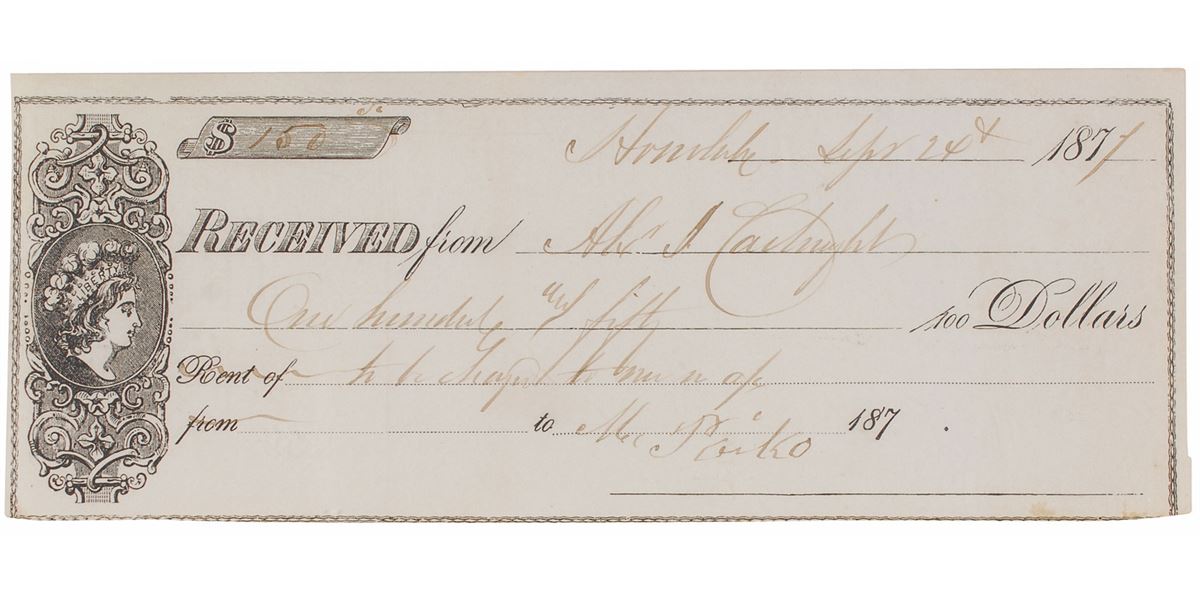 $ 150 Honolulu Sept 24th 1877
RECEIVED from Alexr J Cartwright
One hundred and fifty /100 Dollars
Rent of to be charged to my a/c
from to Piiko 187 .
LIBERTY